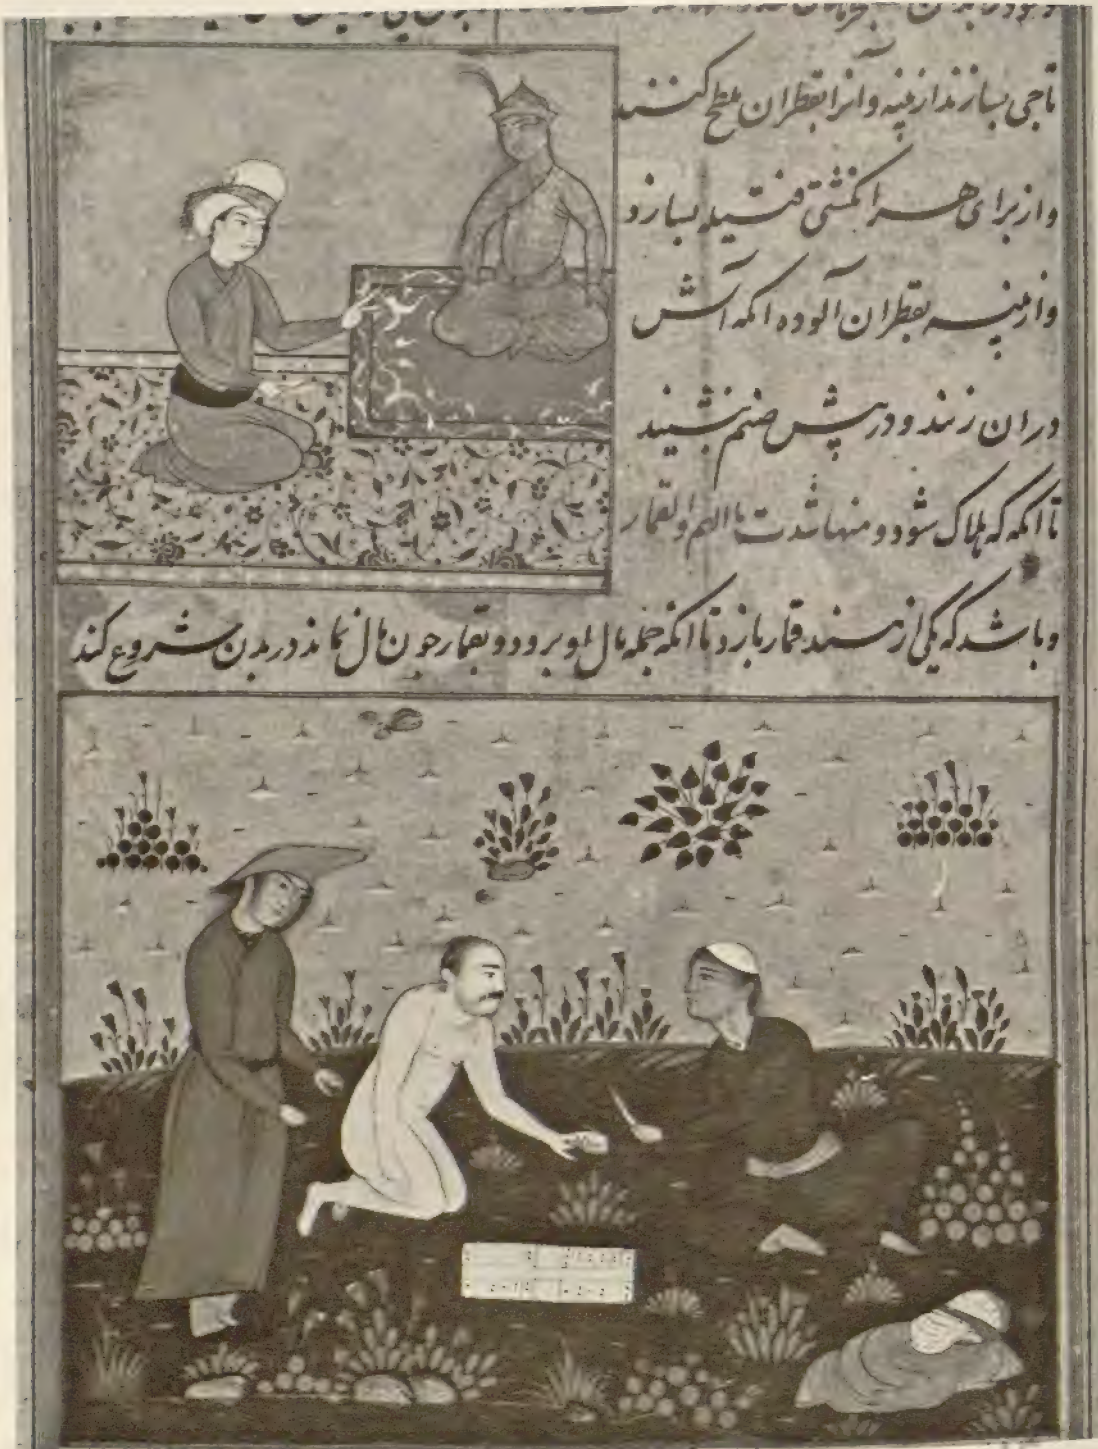 تاجی بسازند از پنبه و آنرا بقطران ملطخ کنند
و از برای هر انکشتی فتیله بسازد
و از پنبه بقطران آلوده انکه آتش
دران زنند و در پیش صنم بنشیند
تا انکه که هلاک شود و منها شدت بالهم والقمار
و باشد که یکی از هند قمار بازد تا انکه جمله مال او برود و بقمار چون مال نماند در بدن شروع کند